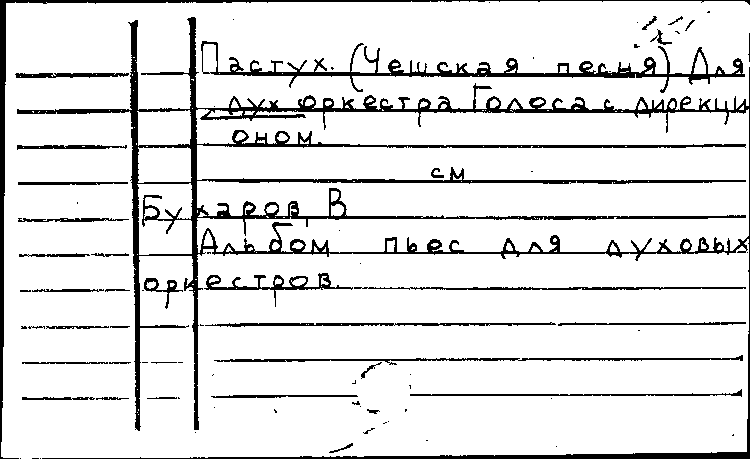 Пастух. (Чешская песня) Для
дух оркестра Голоса с дирекци
оном.
см
Бухаров, В
Альбом пьес для духовых
оркестров.